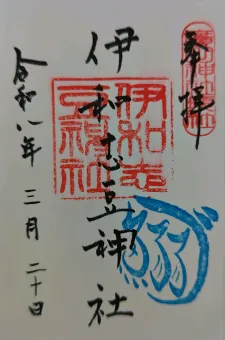 奉拝
伊和志豆神社
令和八年三月二十日
伊和志
豆神社